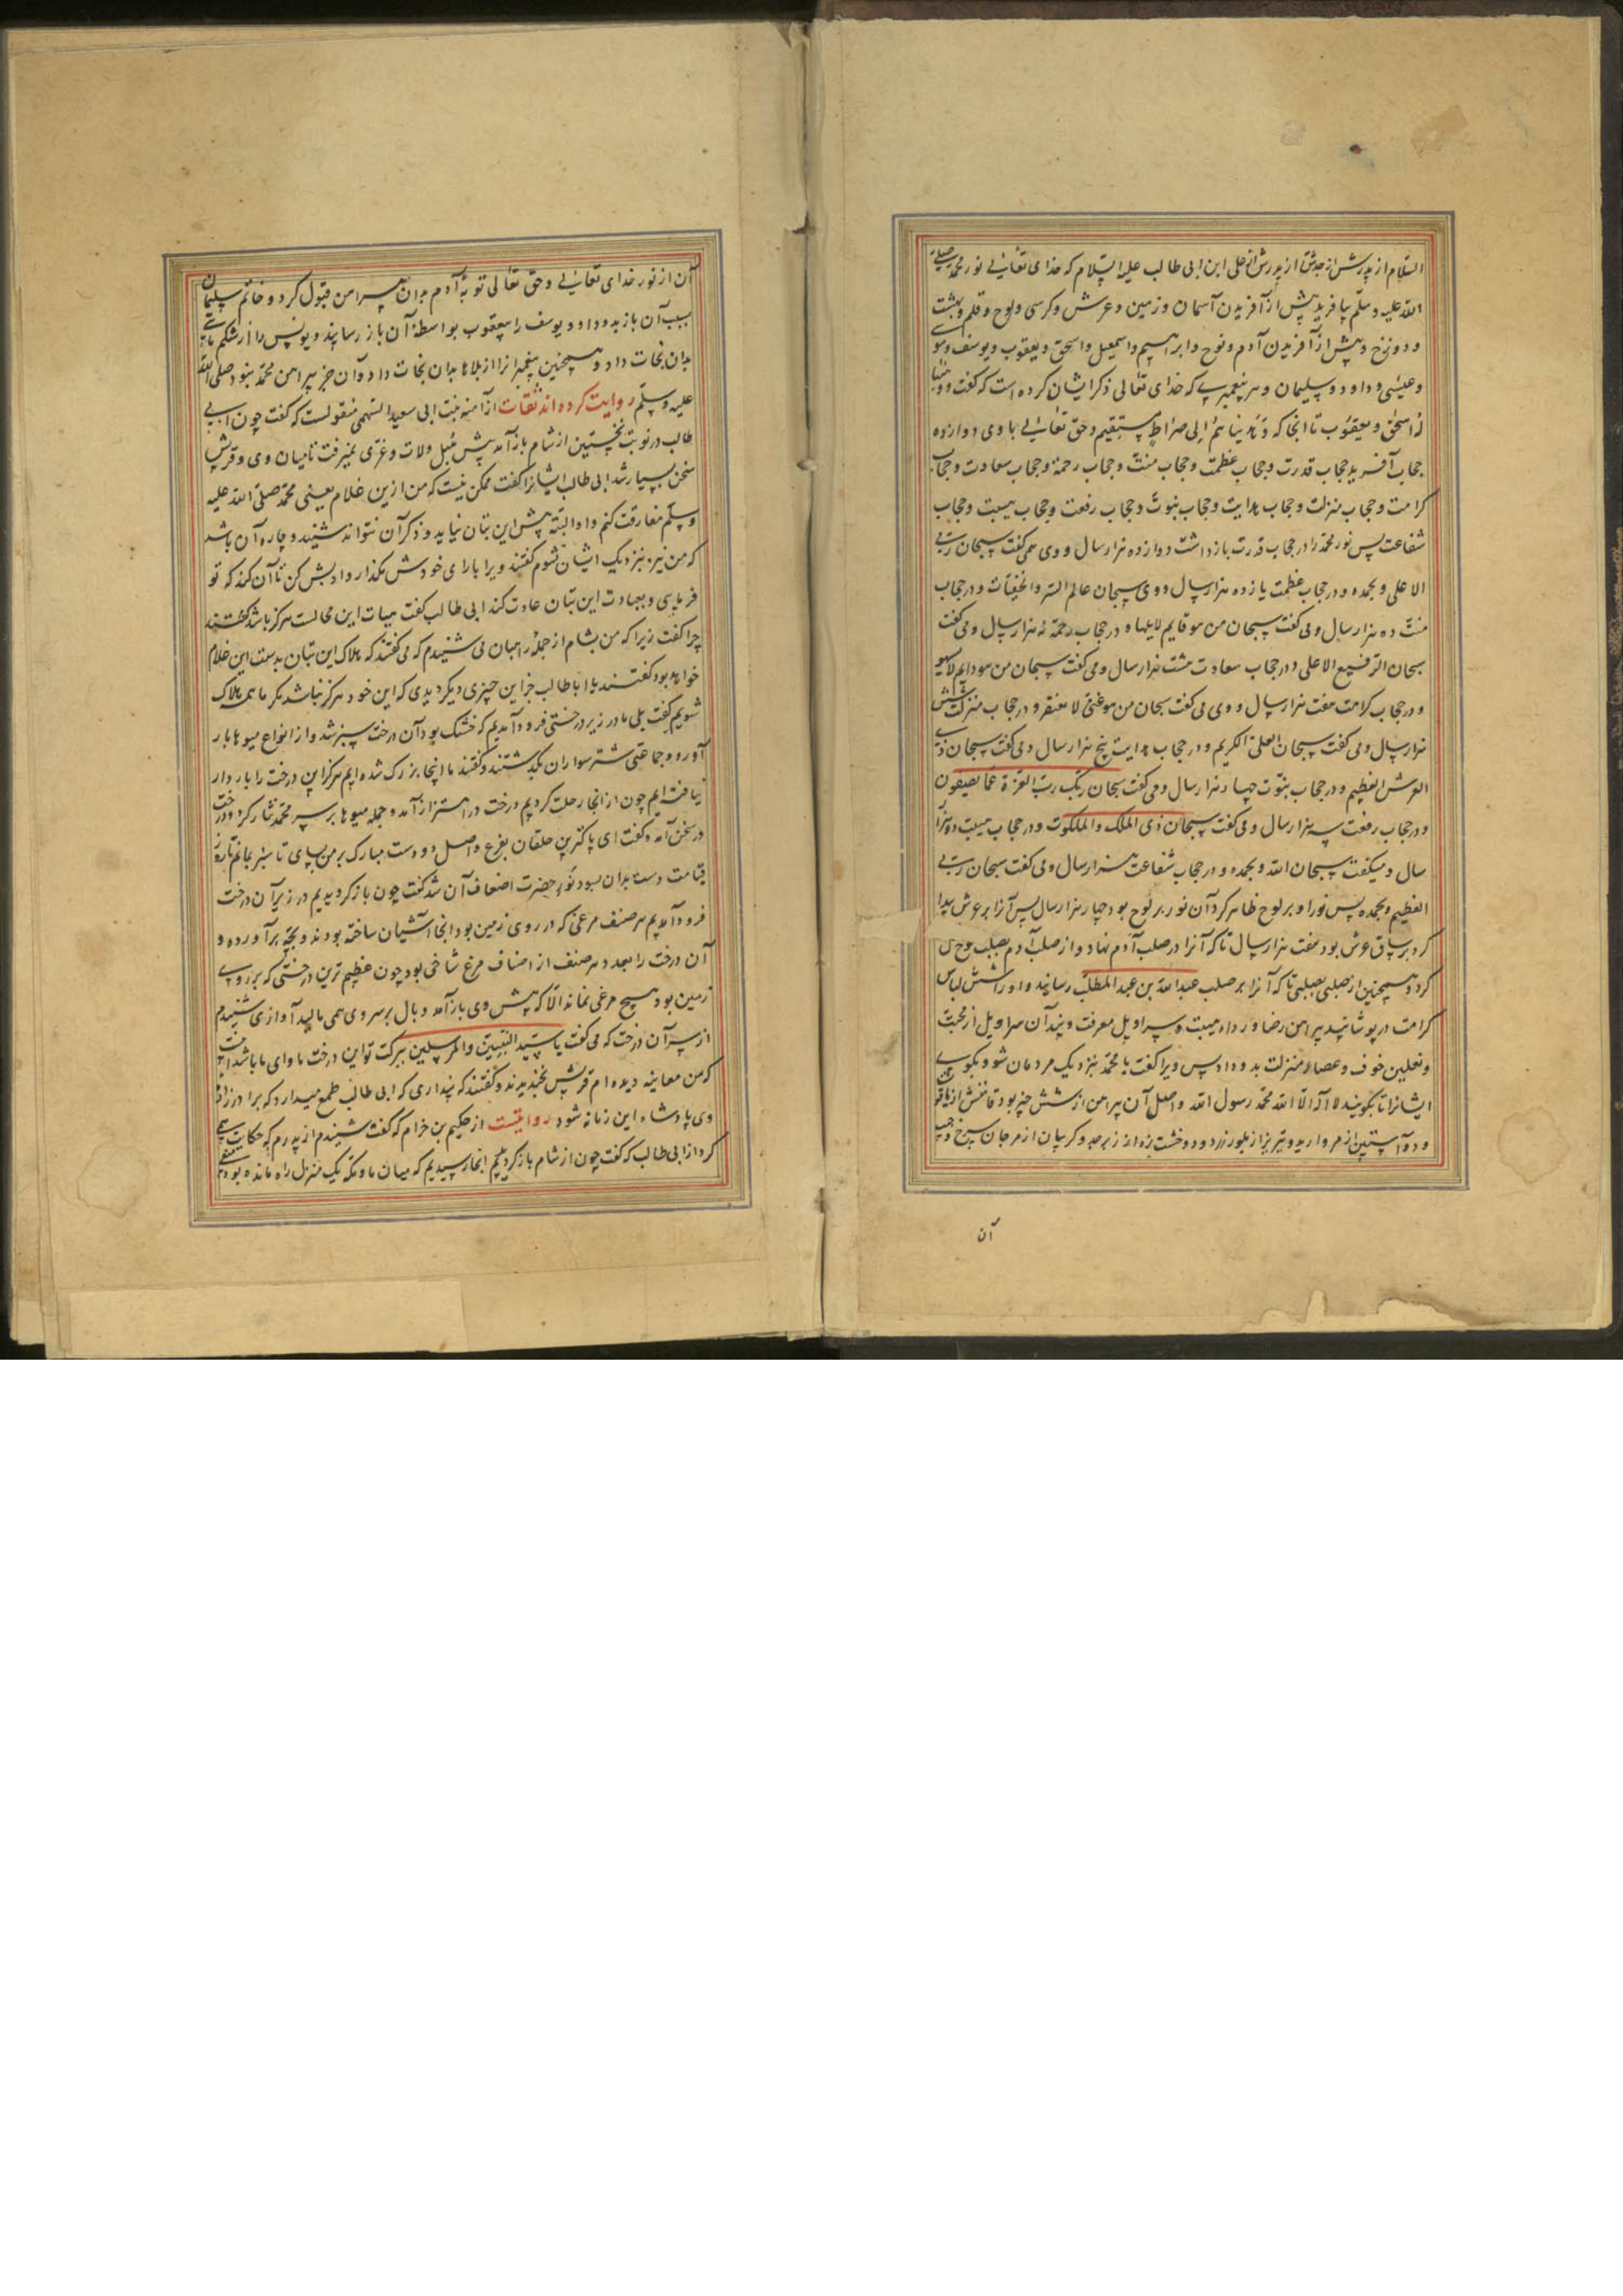 السلام از پدرش از جدش از پدرش از علی ابن ابی طالب علیه السلام که خدای تعالی نور محمد صلی
الله علیه و سلم بیافرید پیش از آفریدن آسمان و زمین و عرش و کرسی و لوح و قلم و بهشت
و دوزخ و پیش از آفریدن آدم و نوح و ابراهیم و اسمعیل و اسحق و یعقوب و یوسف و موسی
و عیسی و داود و سلیمان و هر پیغمبری که خدای تعالی ذکر ایشان کرده است که گفت و وهبنا
له اسحق و یعقوب تا انجا که و هدیناهم الی صراط مستقیم و حق تعالی با وی دوازده
حجاب آفرید حجاب قدرت و حجاب عظمت و حجاب منت و حجاب رحمة و حجاب سعادت و حجاب
کرامت و حجاب منزلت و حجاب هدایت و حجاب نبوت و حجاب رفعت و حجاب هیبت و حجاب
شفاعت پس نور محمد را در حجاب قدرت بازداشت دوازده هزار سال و وی همی گفت سبحان ربی
الاعلی و بحمده و در حجاب عظمت یازده هزار سال و وی سبحان عالم السر والخفیات و در حجاب
منت ده هزار سال و می گفت سبحان من هو قایم لایلهو و در حجاب رحمة نه هزار سال و می گفت
سبحان الرفیع الاعلی و در حجاب سعادت هشت هزار سال و می گفت سبحان من هو دایم لایسهو
و در حجاب کرامت هفت هزار سال و وی می گفت سبحان من هو غنی لا یفتقر و در حجاب منزلت شش
هزار سال و می گفت سبحان العلی الکریم و در حجاب هدایت پنج هزار سال و می گفت سبحان ذی
العرش العظیم و در حجاب نبوت چهار هزار سال و می گفت سبحان ربک رب العزة عما یصفون
و در حجاب رفعت سه هزار سال و می گفت سبحان ذی الملک والملکوت و در حجاب هیبت دو هزار
سال و میگفت سبحان الله و بحمده و در حجاب شفاعت هزار سال و می گفت سبحان ربی
العظیم و بحمده پس نور او بر لوح ظاهر کرد آن نور بر لوح بود چهار هزار سال پس آنرا بر عرش پیدا
کرد بر ساق عرش بود هفت هزار سال تا که آنرا در صلب آدم نهاد و از صلب آدم بصلب نوح
کرد و همچنین از صلبی بصلبی تا که آنرا بر صلب عبدالله بن عبدالمطلب رسانید و او را شش لباس
کرامت در پوشانید پیراهن رضا و رداء هیبت و سراویل معرفت و بند آن سراویل از محبت
و نعلین خوف و عصاء منزلت بدو داد پس ویرا گفت یا محمد بنزدیک مردمان شو و بگوی
ایشانرا تا بگویند لا اله الا الله محمد رسول الله و اصل آن پیراهن از شش چیز بود قامتش از یاقوت
و دو آستین از مروارید و تیریز از بلور زرد و دو خشت زه از زبرجد و گریبان از مرجان سرخ و جیب
آن
آن از نور خدای تعالی و حق تعالی توبهٔ آدم بدان پیراهن قبول کرد و خاتم سلیمان
بسبب آن بازبدو داد و یوسف را بیعقوب بواسطهٔ آن باز رسانید و یونس را از شکم ماهی
بدان نجات داد و همچنین پیغمبرانرا از بلاها بدان نجات داد و آن جز پیراهن محمد نبود صلی الله
علیه و سلم روایت کرده اند ثقات از آمنه بنت ابی سعید السهمی منقولست که گفت چون ابی
طالب در نوبت نخستین از شام بازآمد پیش هبل و لات و عزی نمیرفت تا میان وی و قریش
سخن بسیار شد ابی طالب ایشانرا گفت ممکن نیست که من ازین غلام یعنی محمد صلی الله علیه
و سلم مفارقت کنم و او البته پیش این بتان نیاید و ذکر آن نتواند شنید و چاره آن باشد
که من نیز بنزدیک ایشان نشوم گفتند ویرا بارای خودش مگذار و ادبش کن تا آن کند که تو
فرمایی و بعبادت این بتان عادت کند ابی طالب گفت هیهات این محالست هرگز باشد گفتند
چرا گفت زیرا که من بشام از جملهٔ راهبان می شنیدم که می گفتند که هلاک این بتان بدست این غلام
خواهد بود گفتند یا ابا طالب جز این چیزی دیگر دیدی که این خود هرگز نباشد مگر ما همه هلاک
شویم گفت بلی ما در زیر درختی فرود آمدیم که خشک بود آن درخت سبز شد و از انواع میوها بار
آورد و جماعتی شتر سواران بگذشتند و گفتند ما اینجا بزرک شده ایم هرگز این درخت را باردار
نیافته ایم چون از انجا رحلت کردیم درخت در اهتزاز آمد و جمله میوها بر سر محمد نثار کرد و درخت
در سخن آمد و گفت ای پاکترین خلقان بفرع و اصل دو دست مبارک بر من بسای تا سبز بمانم تا روز
قیامت دست بدان بسود نور حضرت اضعاف آن شد گفت چون باز گردیدیم در زیر آن درخت
فرود آمدیم هر صنف مرغی که در روی زمین بود انجا آشیان ساخته بودند و بچه برآورده و
آن درخت را بعدد هر صنف از اصناف مرغ شاخی بود چون عظیم ترین درختی که بر روی
زمین بود هیچ مرغی نماند الا که پیش وی بازآمد و بال بر سر وی همی مالید آوازی شنیدم
از سر آن درخت که می گفت یا سید النبیین والمرسلین ببرکت تو این درخت ماوای ما باشد اینست
که من معاینه دیده ام قریش بخندیدند و گفتند که پنداری که ابی طالب طمع میدارد که برادرزادهٔ
وی پادشاه این زمانه شود روایتست از حکیم بن حزام که گفت شنیدم از پدرم که حکایت همی
کرد از ابی طالب که گفت چون از شام بازگردیدیم انجا رسیدیم که میان ما و مکه یک منزل راه مانده بود